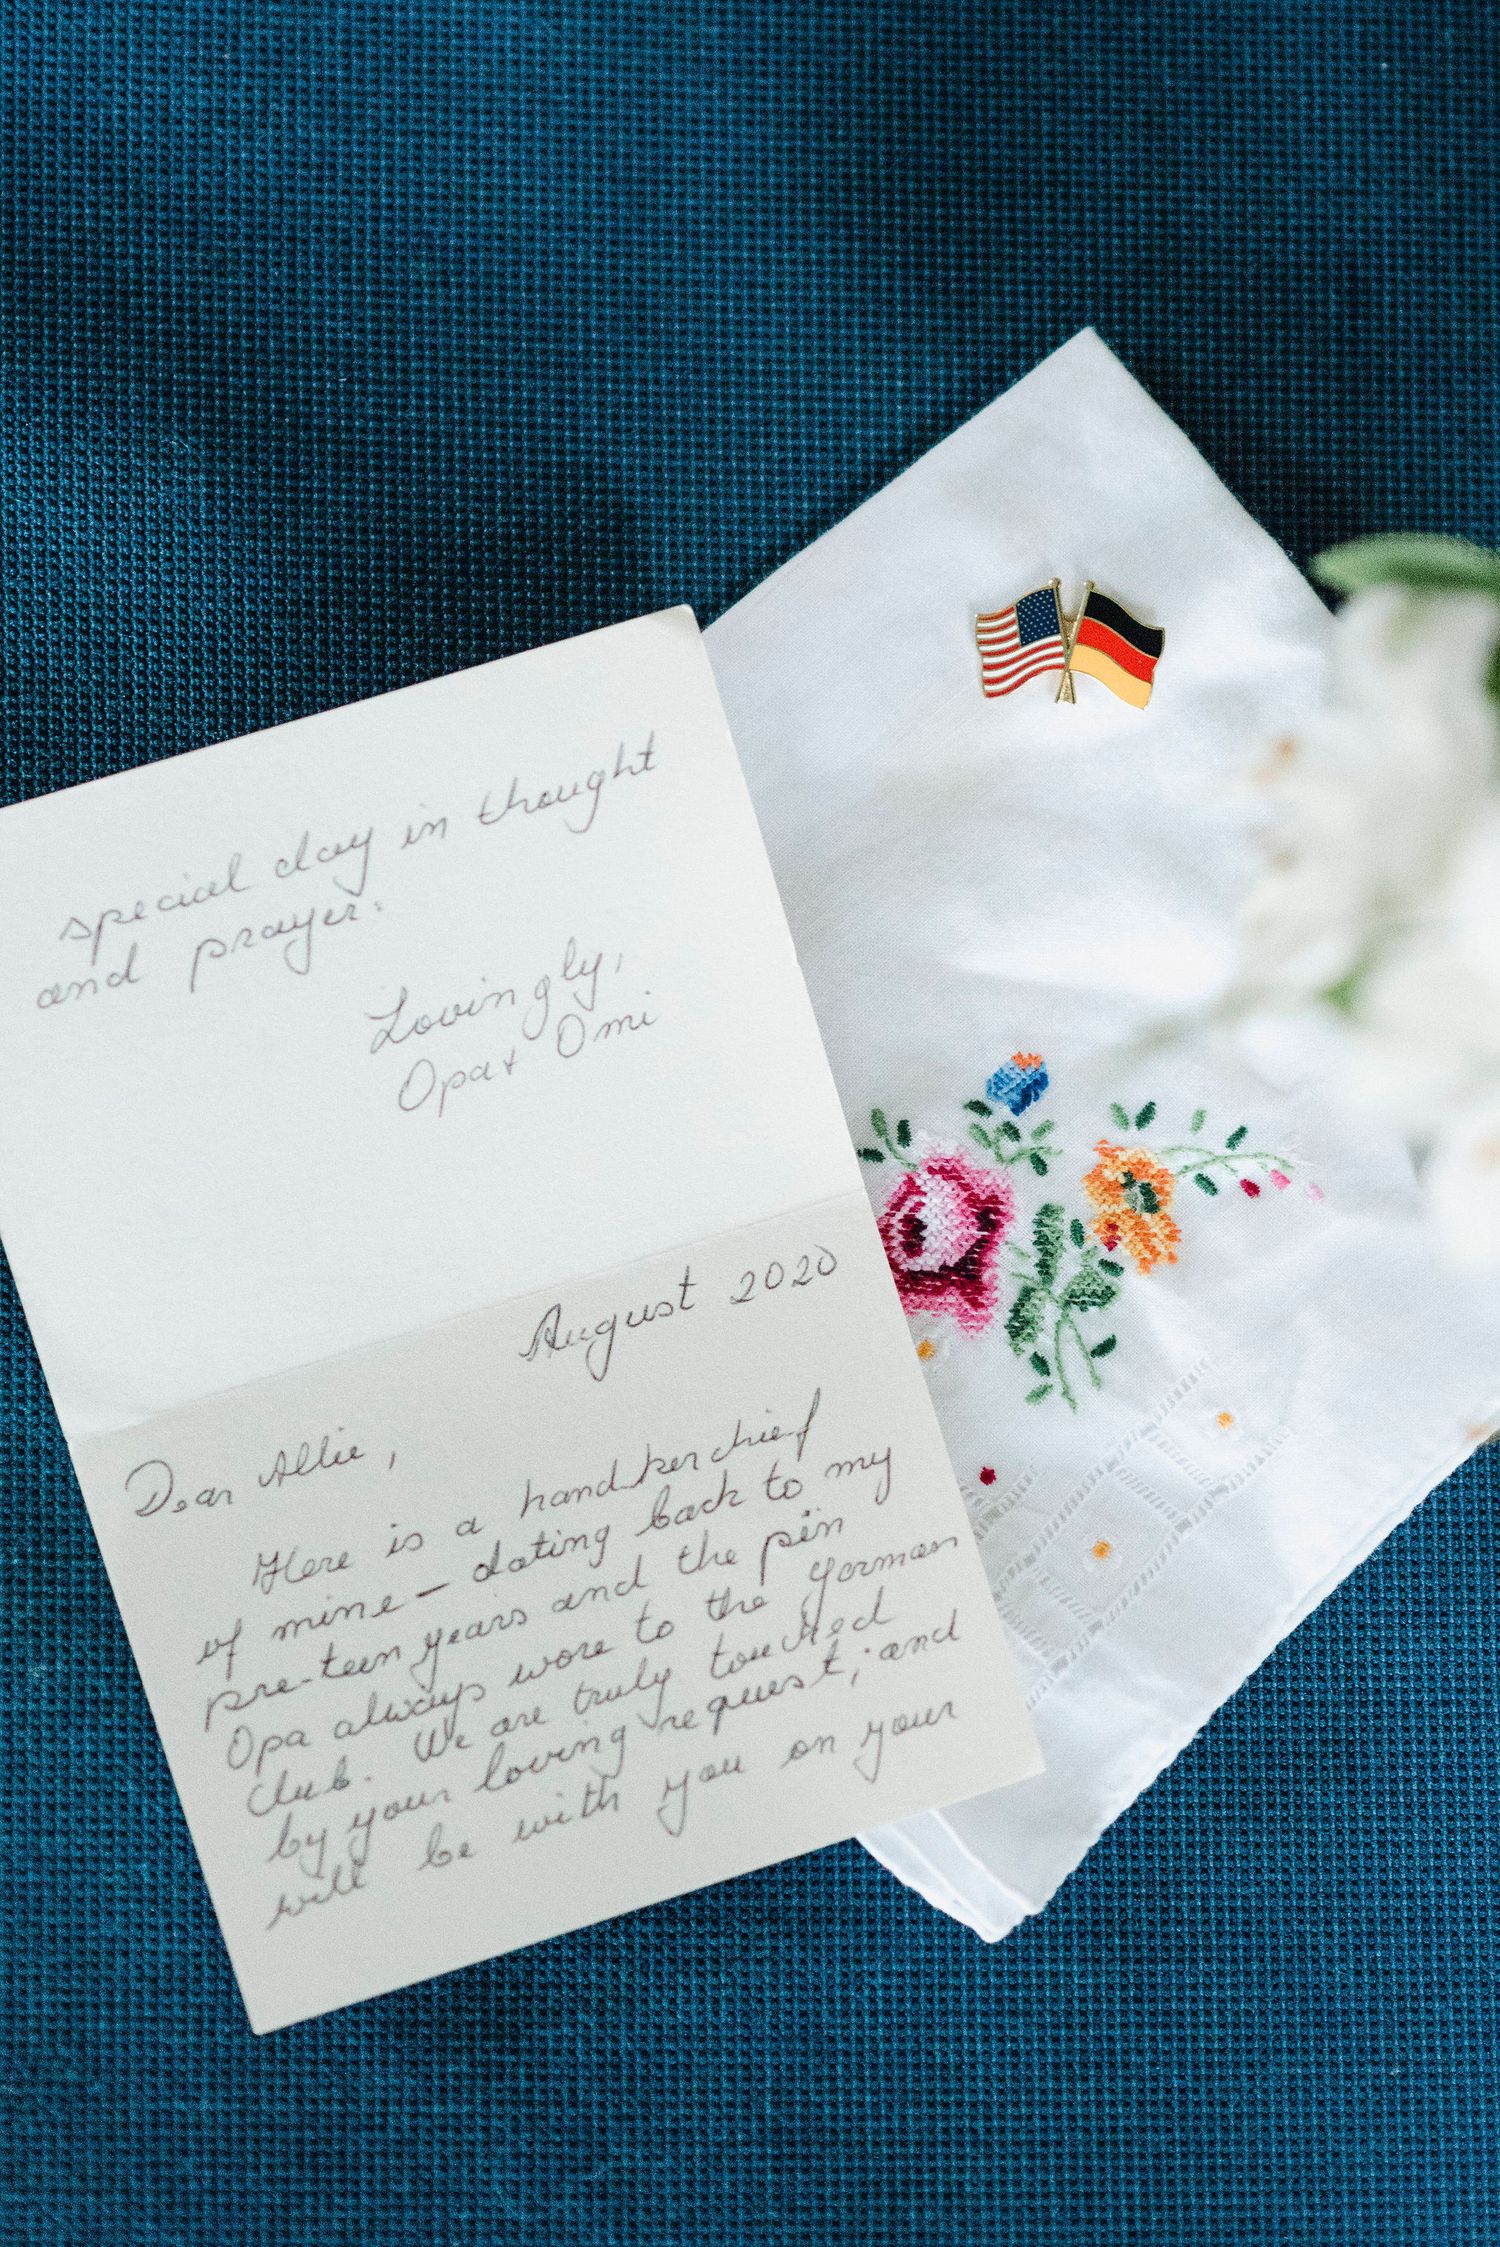 August 2020
Dear Allie,
Here is a handkerchief
of mine – dating back to my
pre-teen years and the pin
Opa always wore to the German
club. We are truly touched
by your loving request, and
will be with you on your
special day in thought
and prayer.
Lovingly,
Opa + Omi